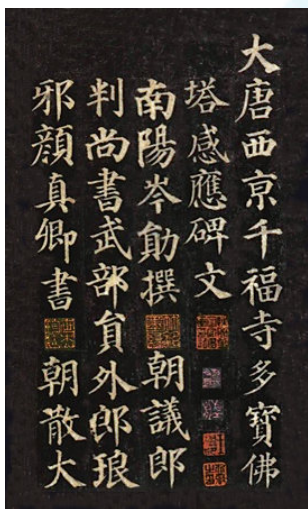 大唐西亰千福寺多寶佛
塔感應碑文
南陽岑勛撰 朝議郎
判尚書武部貟外郎琅
邪顏真卿書 朝散大